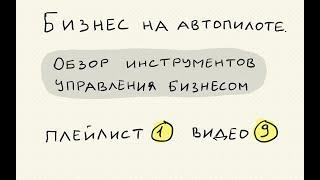 БИЗНЕС НА АВТОПИЛОТЕ.
ОБЗОР ИНСТРУМЕНТОВ
УПРАВЛЕНИЯ БИЗНЕСОМ
ПЛЕЙЛИСТ 1 ВИДЕО 9